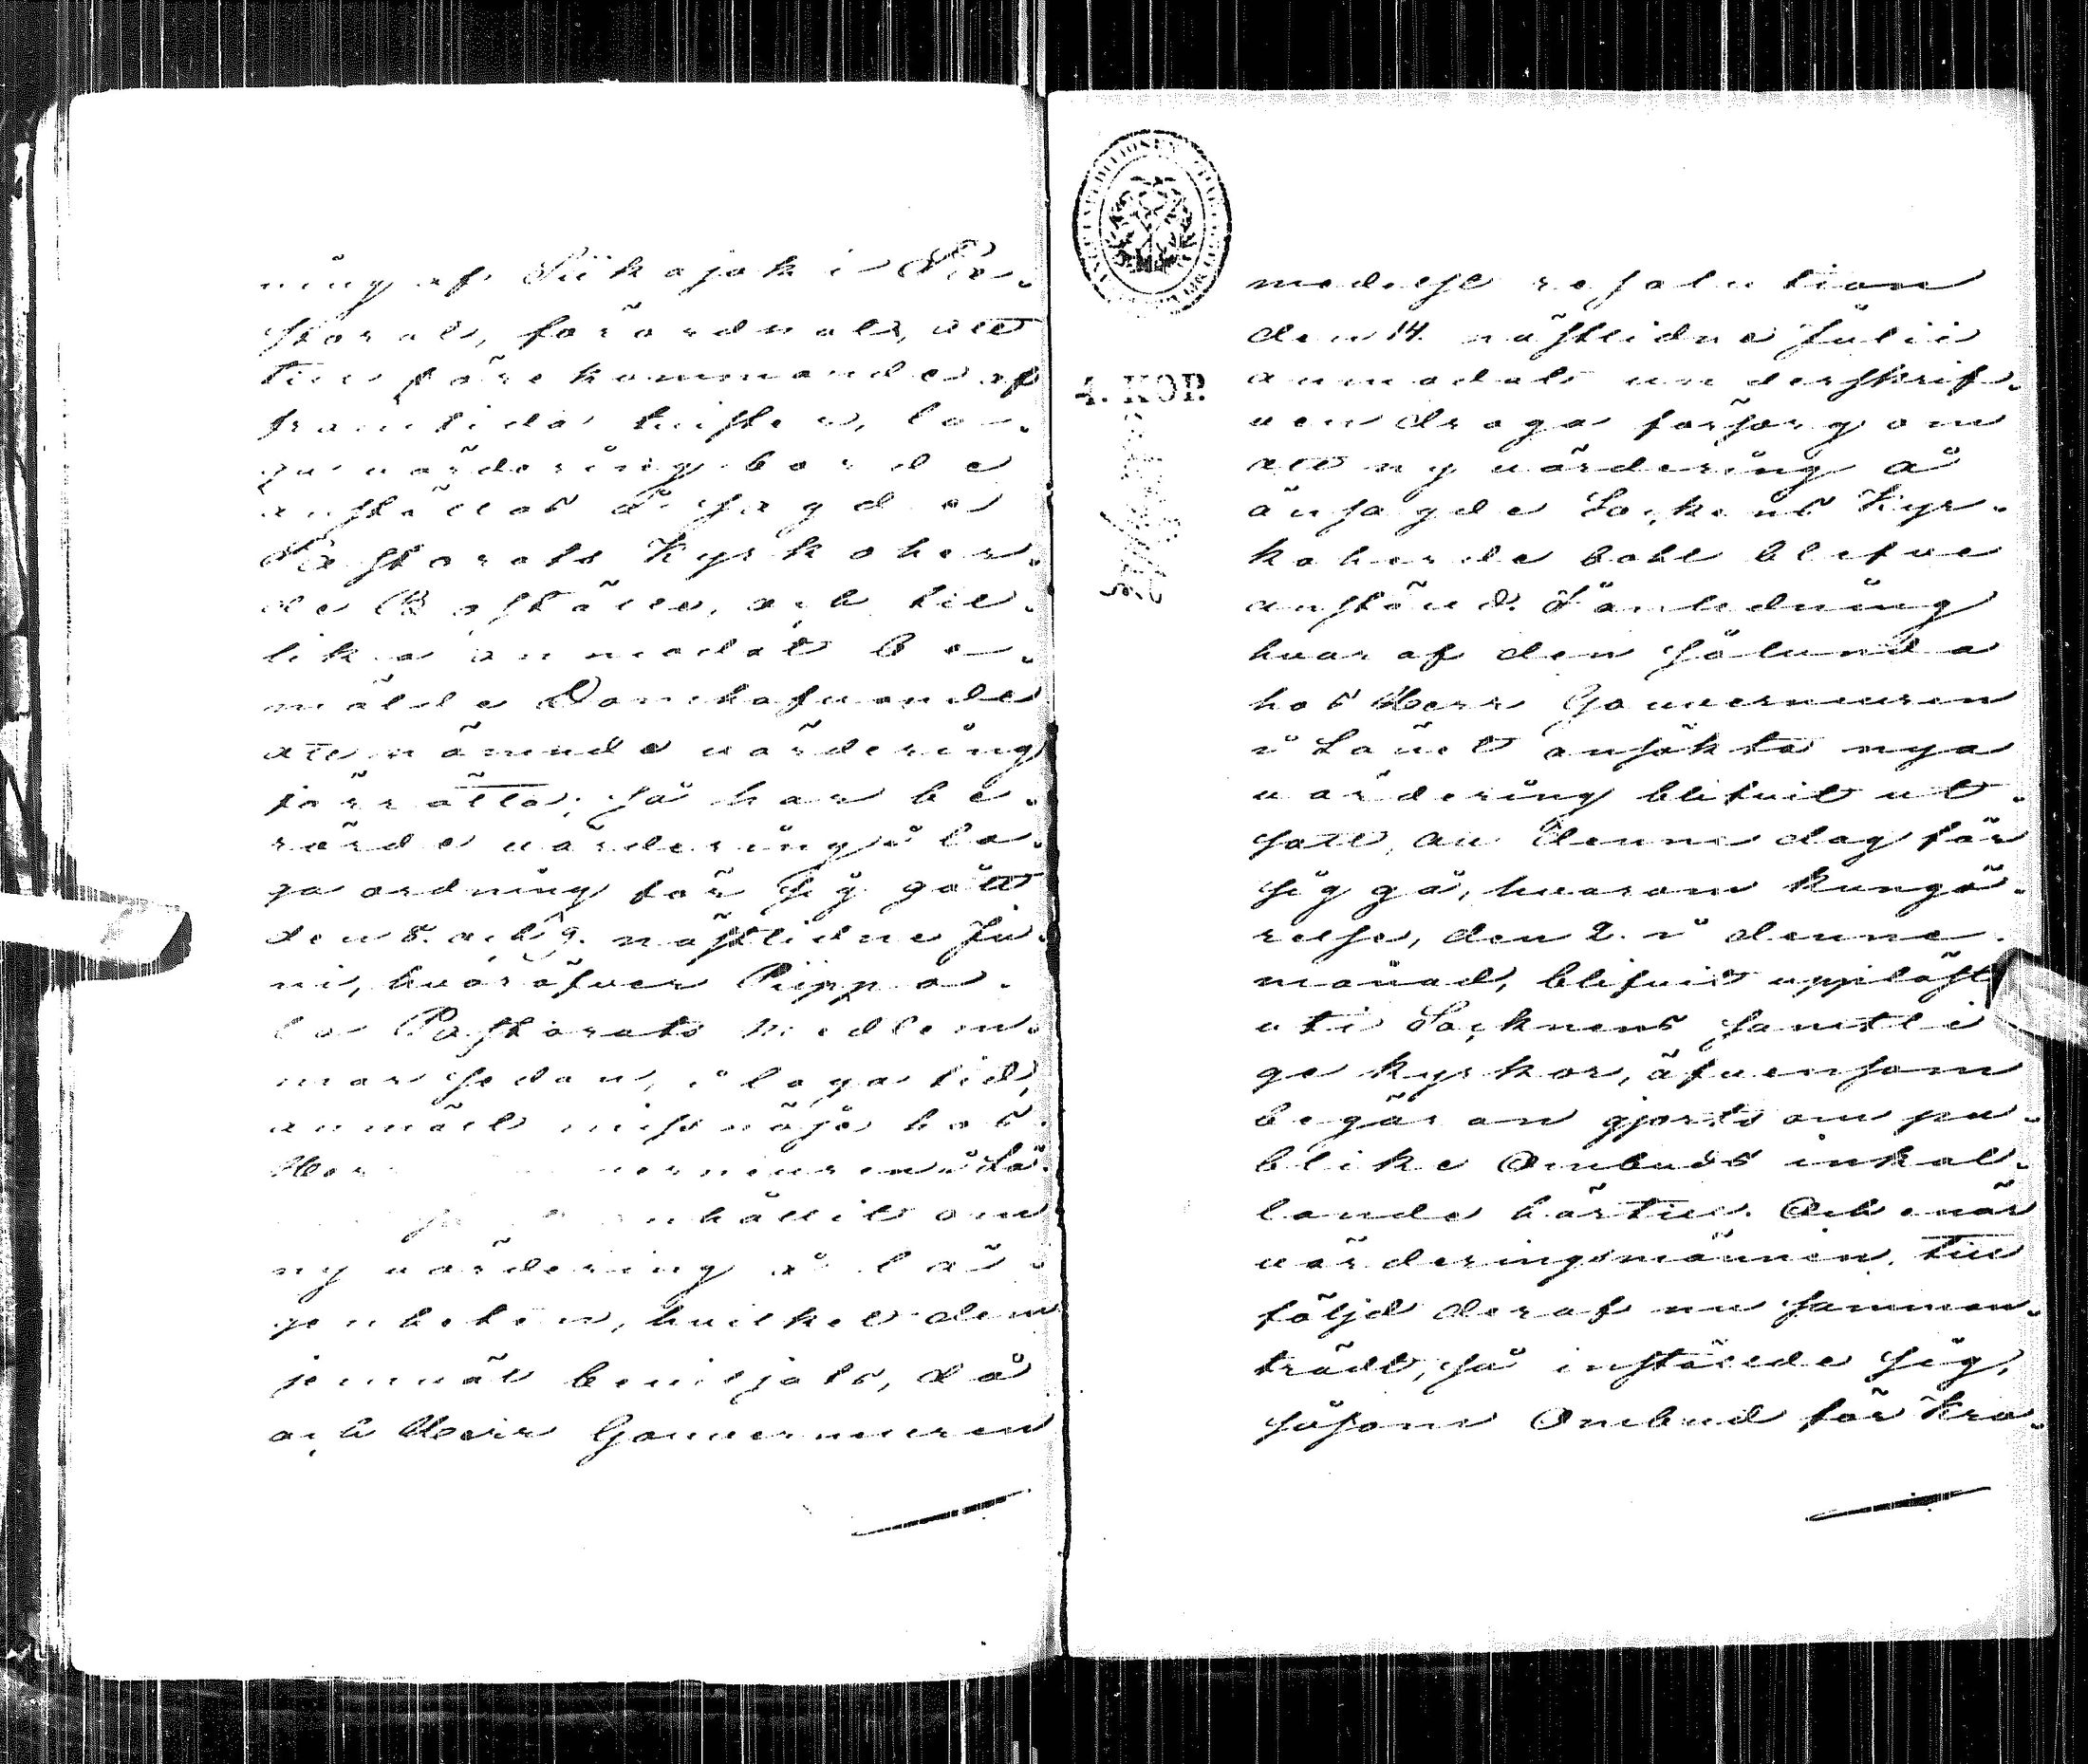 ning af Siikajoki Pa-
storat, förordnat, att
till förekommande af
framtida tvister, la-
ga värdering borde
anställas å sagde
Pastorats Kyrkoher-
de Boställe, och till-
lika anmodat be-
mälde Domhafvande
att nämnde värdering
förrätta; så har be-
rörde värdering i la-
ga ordning för sig gått
den 8. och 9. nästlidne Ju-
ni, hvaröfver Piippo-
la Pastorats medlem-
mar sedan, i laga tid,
anmält missnöje hos
Herr Gouverneuren i Lä-
anhållit om
ny värdering å lä-
genheten, hvilket dem
jemväl beviljats, då
och Herr Gouverneuren
4. KOP.
medelst resolution
den 14. nästlidne Julii
anmodat underskrif-
ven draga försorg om
att ny värdering å
ofvansagde Sockens Kyr-
koherde bohl blefve
anställd. I anledning
hvaraf den sålunda
hos Herr Gouverneuren
i Länet ansökta nya
värdering blifvit ut-
satt, att denne dag för
sig gå, hvarom kungö-
relse, den 2. i denne
månad, blifvit uppläst
uti Socknens samtli-
ge kyrkor, äfvensom
begäran gjorts om pu-
blike Ombuds inkal-
lande härtill. Och enär
värderingsmännen, till
följd deraf nu samman-
trädt, så inställde sig,
såsom Ombud för Kro-